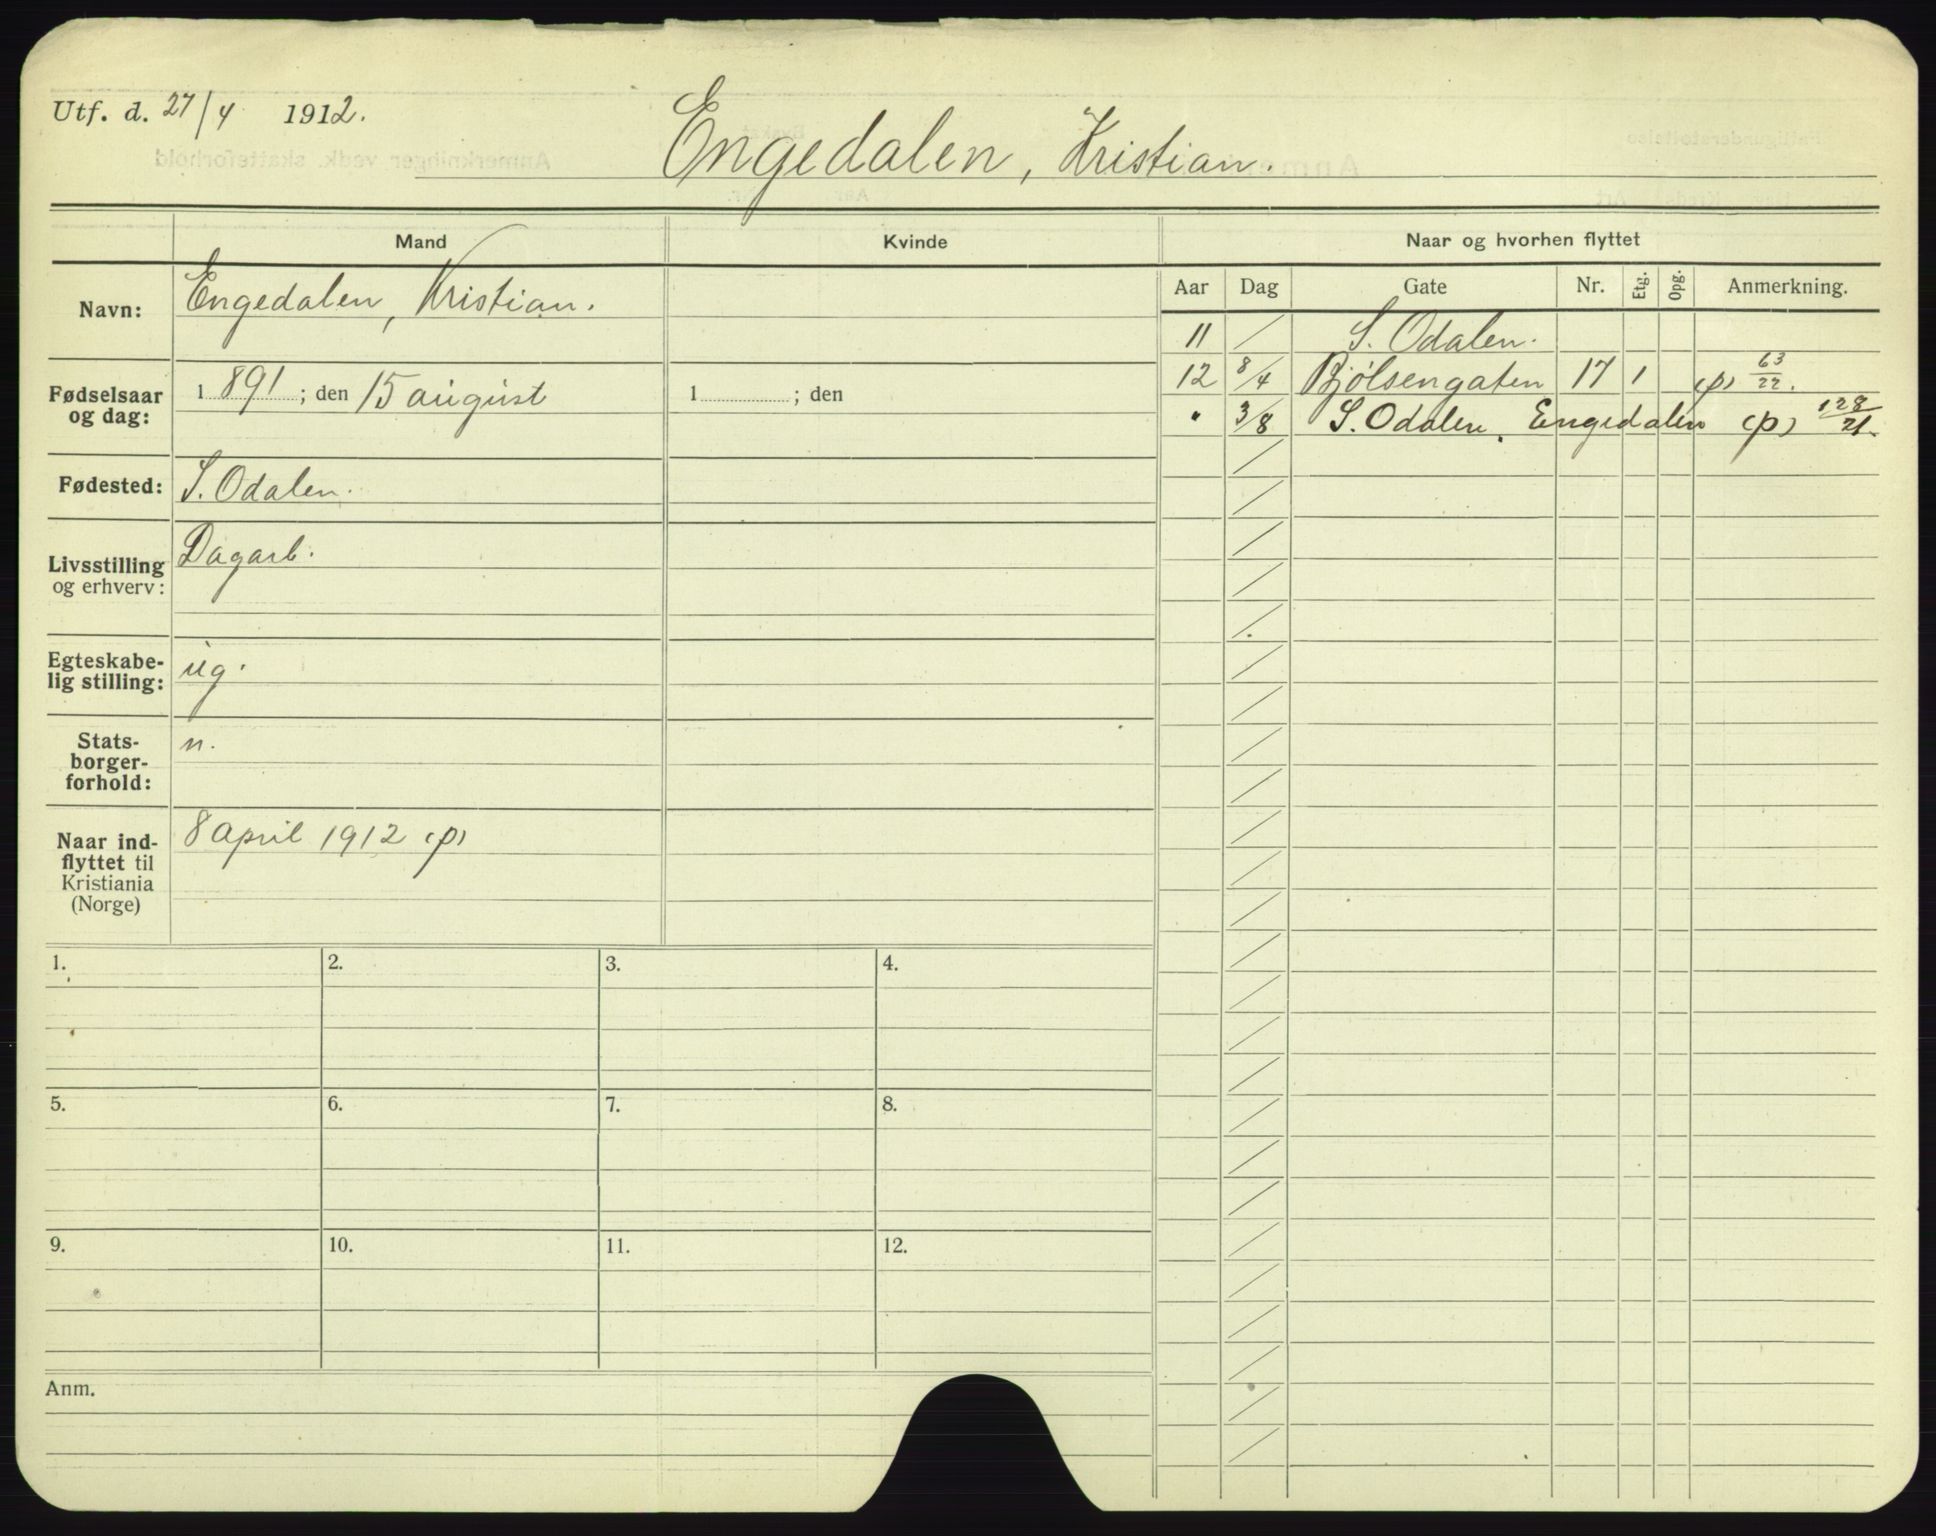 Utf. d. 27/4 1912.
Engedalen, Kristian.
Mand
Kvinde
Naar og hvorhen flyttet
Navn: Engedalen, Kristian.
Fødselsaar og dag: 1891; den 15 august
1 ; den
Fødested: S. Odalen.
Livsstilling og erhverv: Dagarb.
Egteskabe-
lig stilling: ug.
Stats-
borger-
forhold: n.
Naar ind-
flyttet til
Kristiania
(Norge) 8 april 1912 (p)
Aar Dag Gate Nr. Etg. Opg. Anmerkning.
11 / S. Odalen.
12 8/4 Bjølsengaten 17 1 (p) 63/22.
" 3/8 S. Odalen, Engedalen (p) 128/21.
1. 2. 3. 4.
5. 6. 7. 8.
9. 10. 11. 12.
Anm.